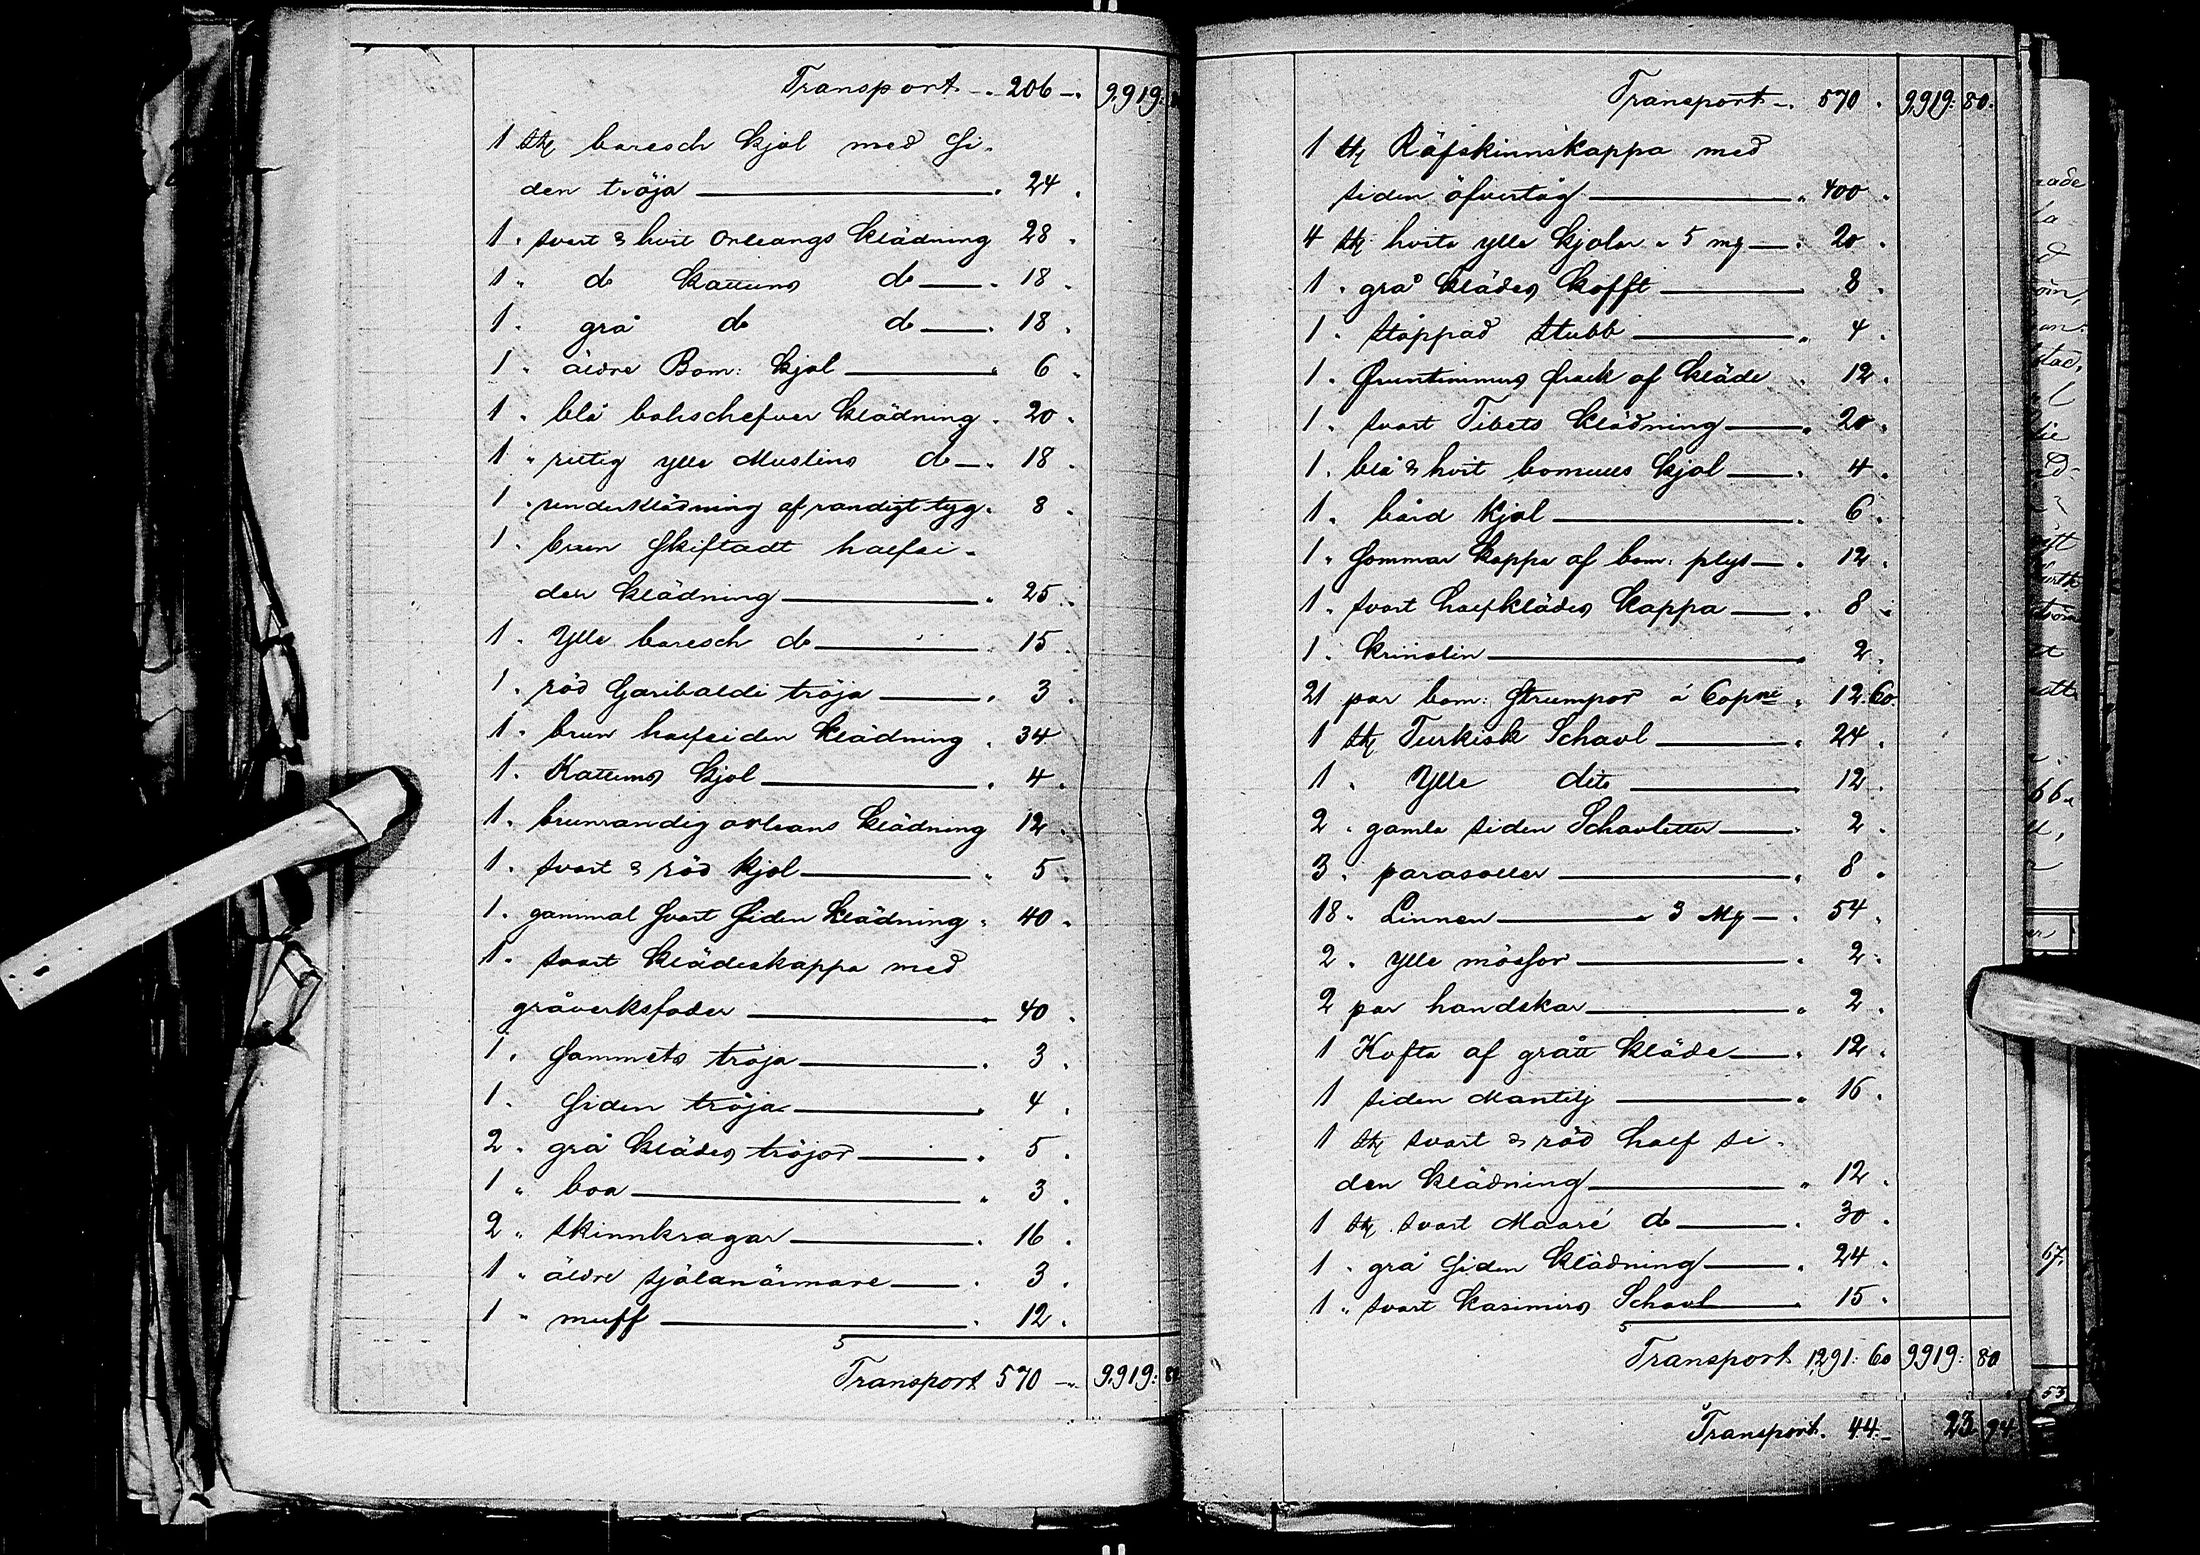 Transport " 206 " 9,919:
1 st baresch kjol med Si-
den tröja " 24 "
1 " svart & hvit Orleangs klädning 28 "
1 " do Kattuns do " 18 "
1 " grå do do " 18 "
1 " äldre Bom: kjol " 6 "
1 " blå klädning " 20 "
1 " rutig ylle Muslins do " 18 "
1 " underklädning af randigt tyg " 8 "
1 " brun skiftadt halfsi-
den klädning " 25 "
1 " Ylle baresch do " 15 "
1 " röd Garibaldi tröja " 3 "
1 " brun halfsiden klädning " 34
1 " Kattuns kjol " 4 "
1 " brunrandig orleans klädning 12 "
1 " svart & röd kjol " 5 "
1 " gammal svart siden klädning " 40 "
1 " svart klädeskappa med
gråverksfoder " 40 "
1 " Sammets tröja " 3 "
1 " Siden tröja " 4 "
2 " grå klädes tröjor " 5 "
1 " boa " 3 "
2 " skinnkragar " 16 "
1 " äldre själanärmare " 3 "
1 " muff " 12 "
Transport 570 " 9,919:
Transport " 570 " 9,919: 80.
1 st Räfskinnskappa med
siden öfvertåg " 400 "
4 st hvita ylle kjolar a 5 mk " 20 "
1 " grå klädes kofft " 8 "
1 " stoppad stubb " 4 "
1 " Fruntimmers frack af kläde " 12 "
1 " svart Tibets klädning " 20 "
1 " blå & hvit bomulls kjol " 4 "
1 " bård kjol " 6 "
1 " Sommar kappa af bom: plys " 12 "
1 " svart halfklädes kappa " 8 "
1 " krinolin " 2 "
21 par bom: Strumpor á 60 pni " 12.60.
1 st Turkisk Schavl " 24 "
1 " Ylle dito " 12 "
2 " gamla siden Schavletter " 2 "
3 " parasoller " 8 "
18 " Linnen a 3 Mk " 54 "
2 " ylle mössor " 2 "
2 par handskar " 2 "
1 Kofta af grått kläde " 12 "
1 siden Mantilj " 16 "
1 st svart & röd half si-
den klädning " 12 "
1 st svart Maaré do " 30 "
1 " grå siden klädning " 24 "
1 " svart kasimirs Schavl " 15 "
Transport 1,291: 60 9919: 80
Transport. 44. 23 94